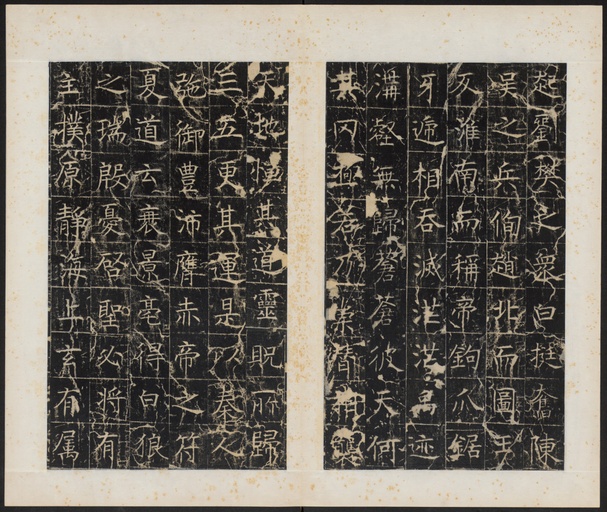 起劉樊之衆白挺奮陳
吳之兵徇趙北而圖王
反淮南而稱帝鉤爪鋸
牙遞相吞滅茫茫禹迹
溝壑無歸蒼蒼彼天何
其罔極若乃榮替相
天地恒其道靈貺所歸
三五更其運是以秦人
弛御豊沛膺赤帝之符
夏道云衰景亳得白狼
之瑞殷憂啓聖必將有
主撲原靜海上玄有属